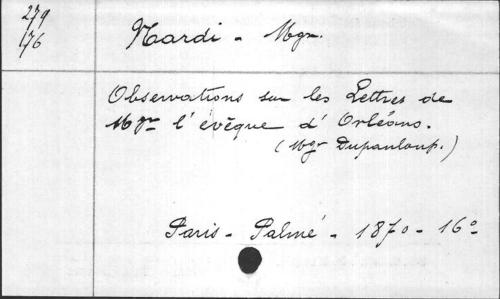 279
176
Nardi - Mgr.
Observations sur les Lettres de
Mgr l'évêque d'Orléans.
(Mgr Dupanloup.)
Paris - Palmé - 1870 - 16°